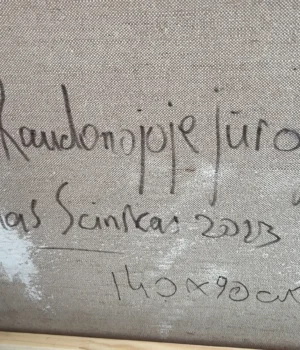 Raudonojoje jūro
as Scinskas 2023
140×90 cm